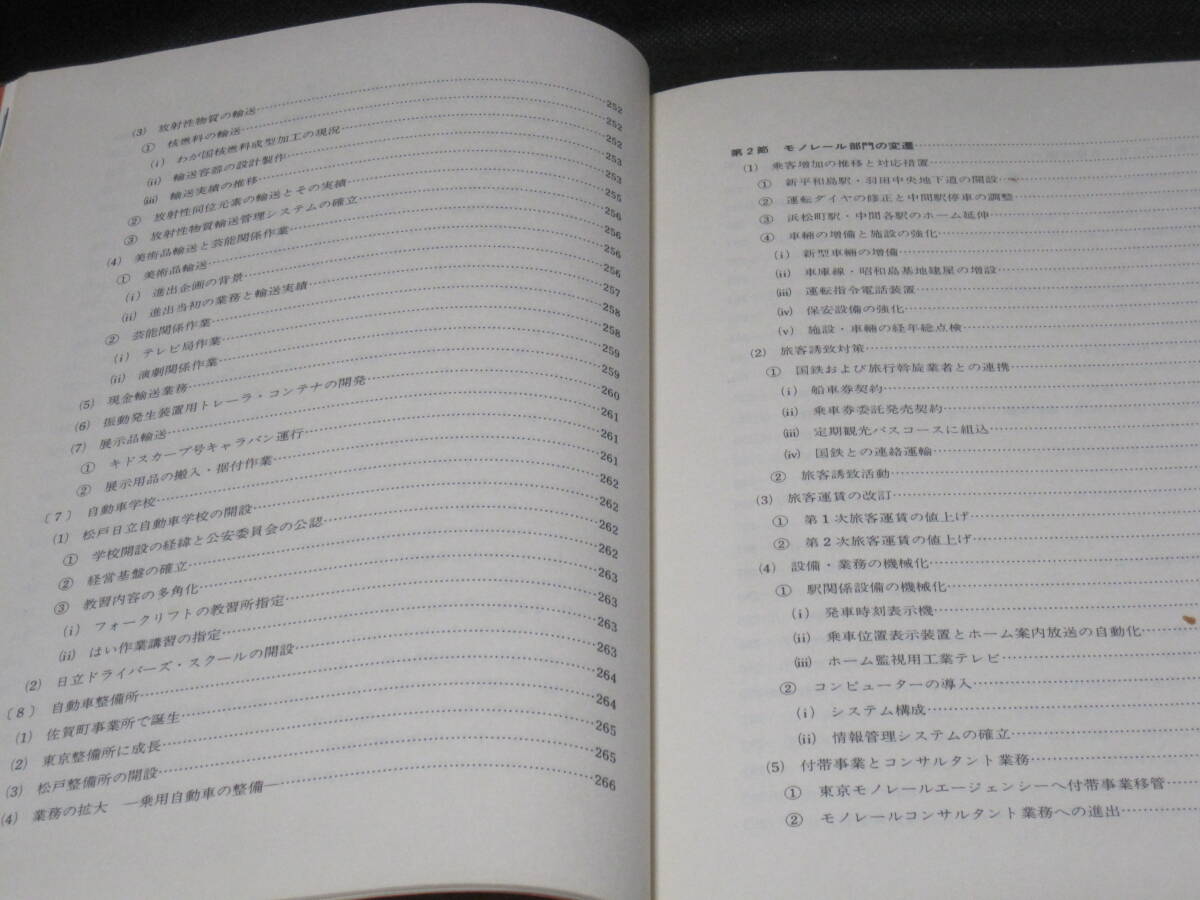 (3) 放射性物質の輸送……252
① 核燃料の輸送……252
(i) わが国核燃料成型加工の現況……252
(ii) 輸送容器の設計製作……253
(iii) 輸送実績の推移……253
② 放射性同位元素の輸送とその実績……255
③ 放射性物質輸送管理システムの確立……256
(4) 美術品輸送と芸能関係作業……256
① 美術品輸送……256
(i) 進出企画の背景……256
(ii) 進出当初の業務と輸送実績……257
② 芸能関係作業……258
(i) テレビ局作業……258
(ii) 演劇関係作業……259
(5) 現金輸送業務……259
(6) 振動発生装置用トレーラ・コンテナの開発……260
(7) 展示品輸送……261
① キドスカープ号キャラバン運行……261
② 展示用品の搬入・据付作業……261
〔7〕 自動車学校……262
(1) 松戸日立自動車学校の開設……262
① 学校開設の経緯と公安委員会の公認……262
② 経営基盤の確立……262
③ 教習内容の多角化……263
(i) フォークリフトの教習所指定……263
(ii) はい作業講習の指定……263
(2) 日立ドライバーズ・スクールの開設……263
〔8〕 自動車整備所……264
(1) 佐賀町事業所で誕生……264
(2) 東京整備所に成長……265
(3) 松戸整備所の開設……265
(4) 業務の拡大 ―乗用自動車の整備―……266
第2節 モノレール部門の変遷……
(1) 乗客増加の推移と対応措置……
① 新平和島駅・羽田中央地下道の開設……
② 運転ダイヤの修正と中間駅停車の調整……
③ 浜松町駅・中間各駅のホーム延伸……
④ 車輛の増備と施設の強化……
(i) 新型車輛の増備……
(ii) 車庫線・昭和島基地建屋の増設……
(iii) 運転指令電話装置……
(iv) 保安設備の強化……
(v) 施設・車輛の経年総点検……
(2) 旅客誘致対策……
① 国鉄および旅行斡旋業者との連携……
(i) 船車券契約……
(ii) 乗車券委託発売契約……
(iii) 定期観光バスコースに組込……
(iv) 国鉄との連絡運輸……
② 旅客誘致活動……
(3) 旅客運賃の改訂……
① 第1次旅客運賃の値上げ……
② 第2次旅客運賃の値上げ……
(4) 設備・業務の機械化……
① 駅関係設備の機械化……
(i) 発車時刻表示機……
(ii) 乗車位置表示装置とホーム案内放送の自動化……
(iii) ホーム監視用工業テレビ……
② コンピューターの導入……
(i) システム構成……
(ii) 情報管理システムの確立……
(5) 付帯事業とコンサルタント業務……
① 東京モノレールエージェンシーへ付帯事業移管……
② モノレールコンサルタント業務への進出……